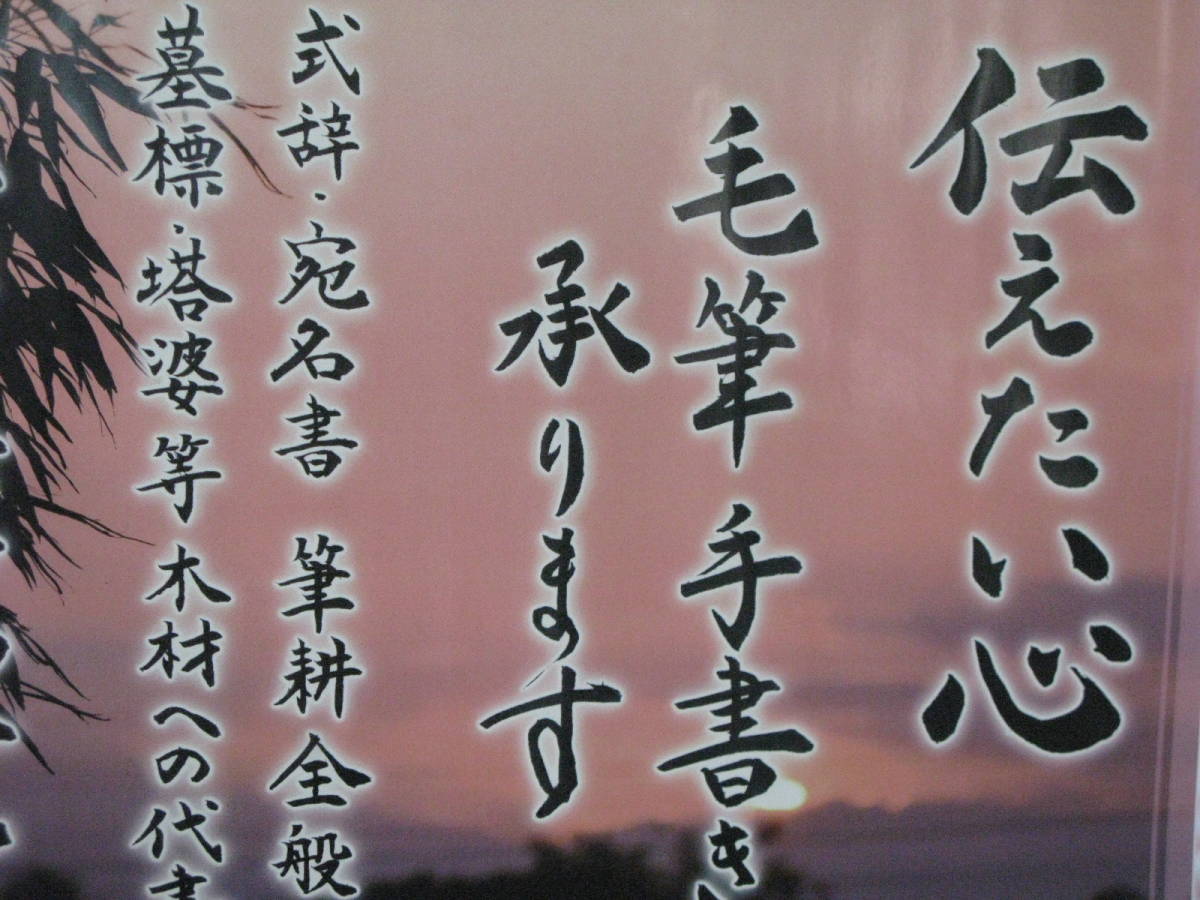 伝えたい心
毛筆手書き
承ります
式辞・宛名書 筆耕全般
墓標・塔婆等木材への代書